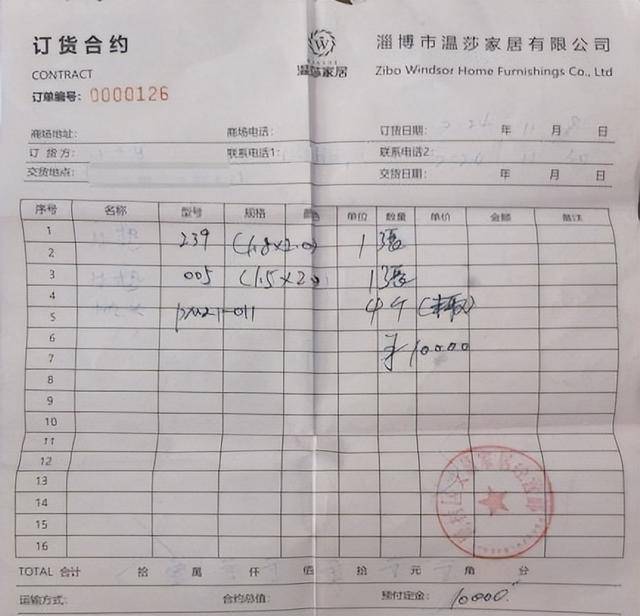 订货合约
温莎家居
淄博市温莎家居有限公司
CONTRACT
Zibo Windsor Home Furnishings Co., Ltd
订单编号: 0000126
商场地址: 商场电话: 订货日期: 年 11 月 8 日
订 货 方: 联系电话1: 联系电话2:
交货地点: 交货日期: 年 月 日
序号 名称 型号 规格 颜色 单位 数量 单价 金额 备注
1
239 (1.8×2.0) 1 张
2
3 005 (1.5×2.0) 1 张
4
5 011 4 个
6
¥10000
7
8
9
10
11
12
13
14
15
16
TOTAL 合计 拾 萬 仟 佰 拾 元 角 分
运输方式: 合约总值: 预付定金: 10000